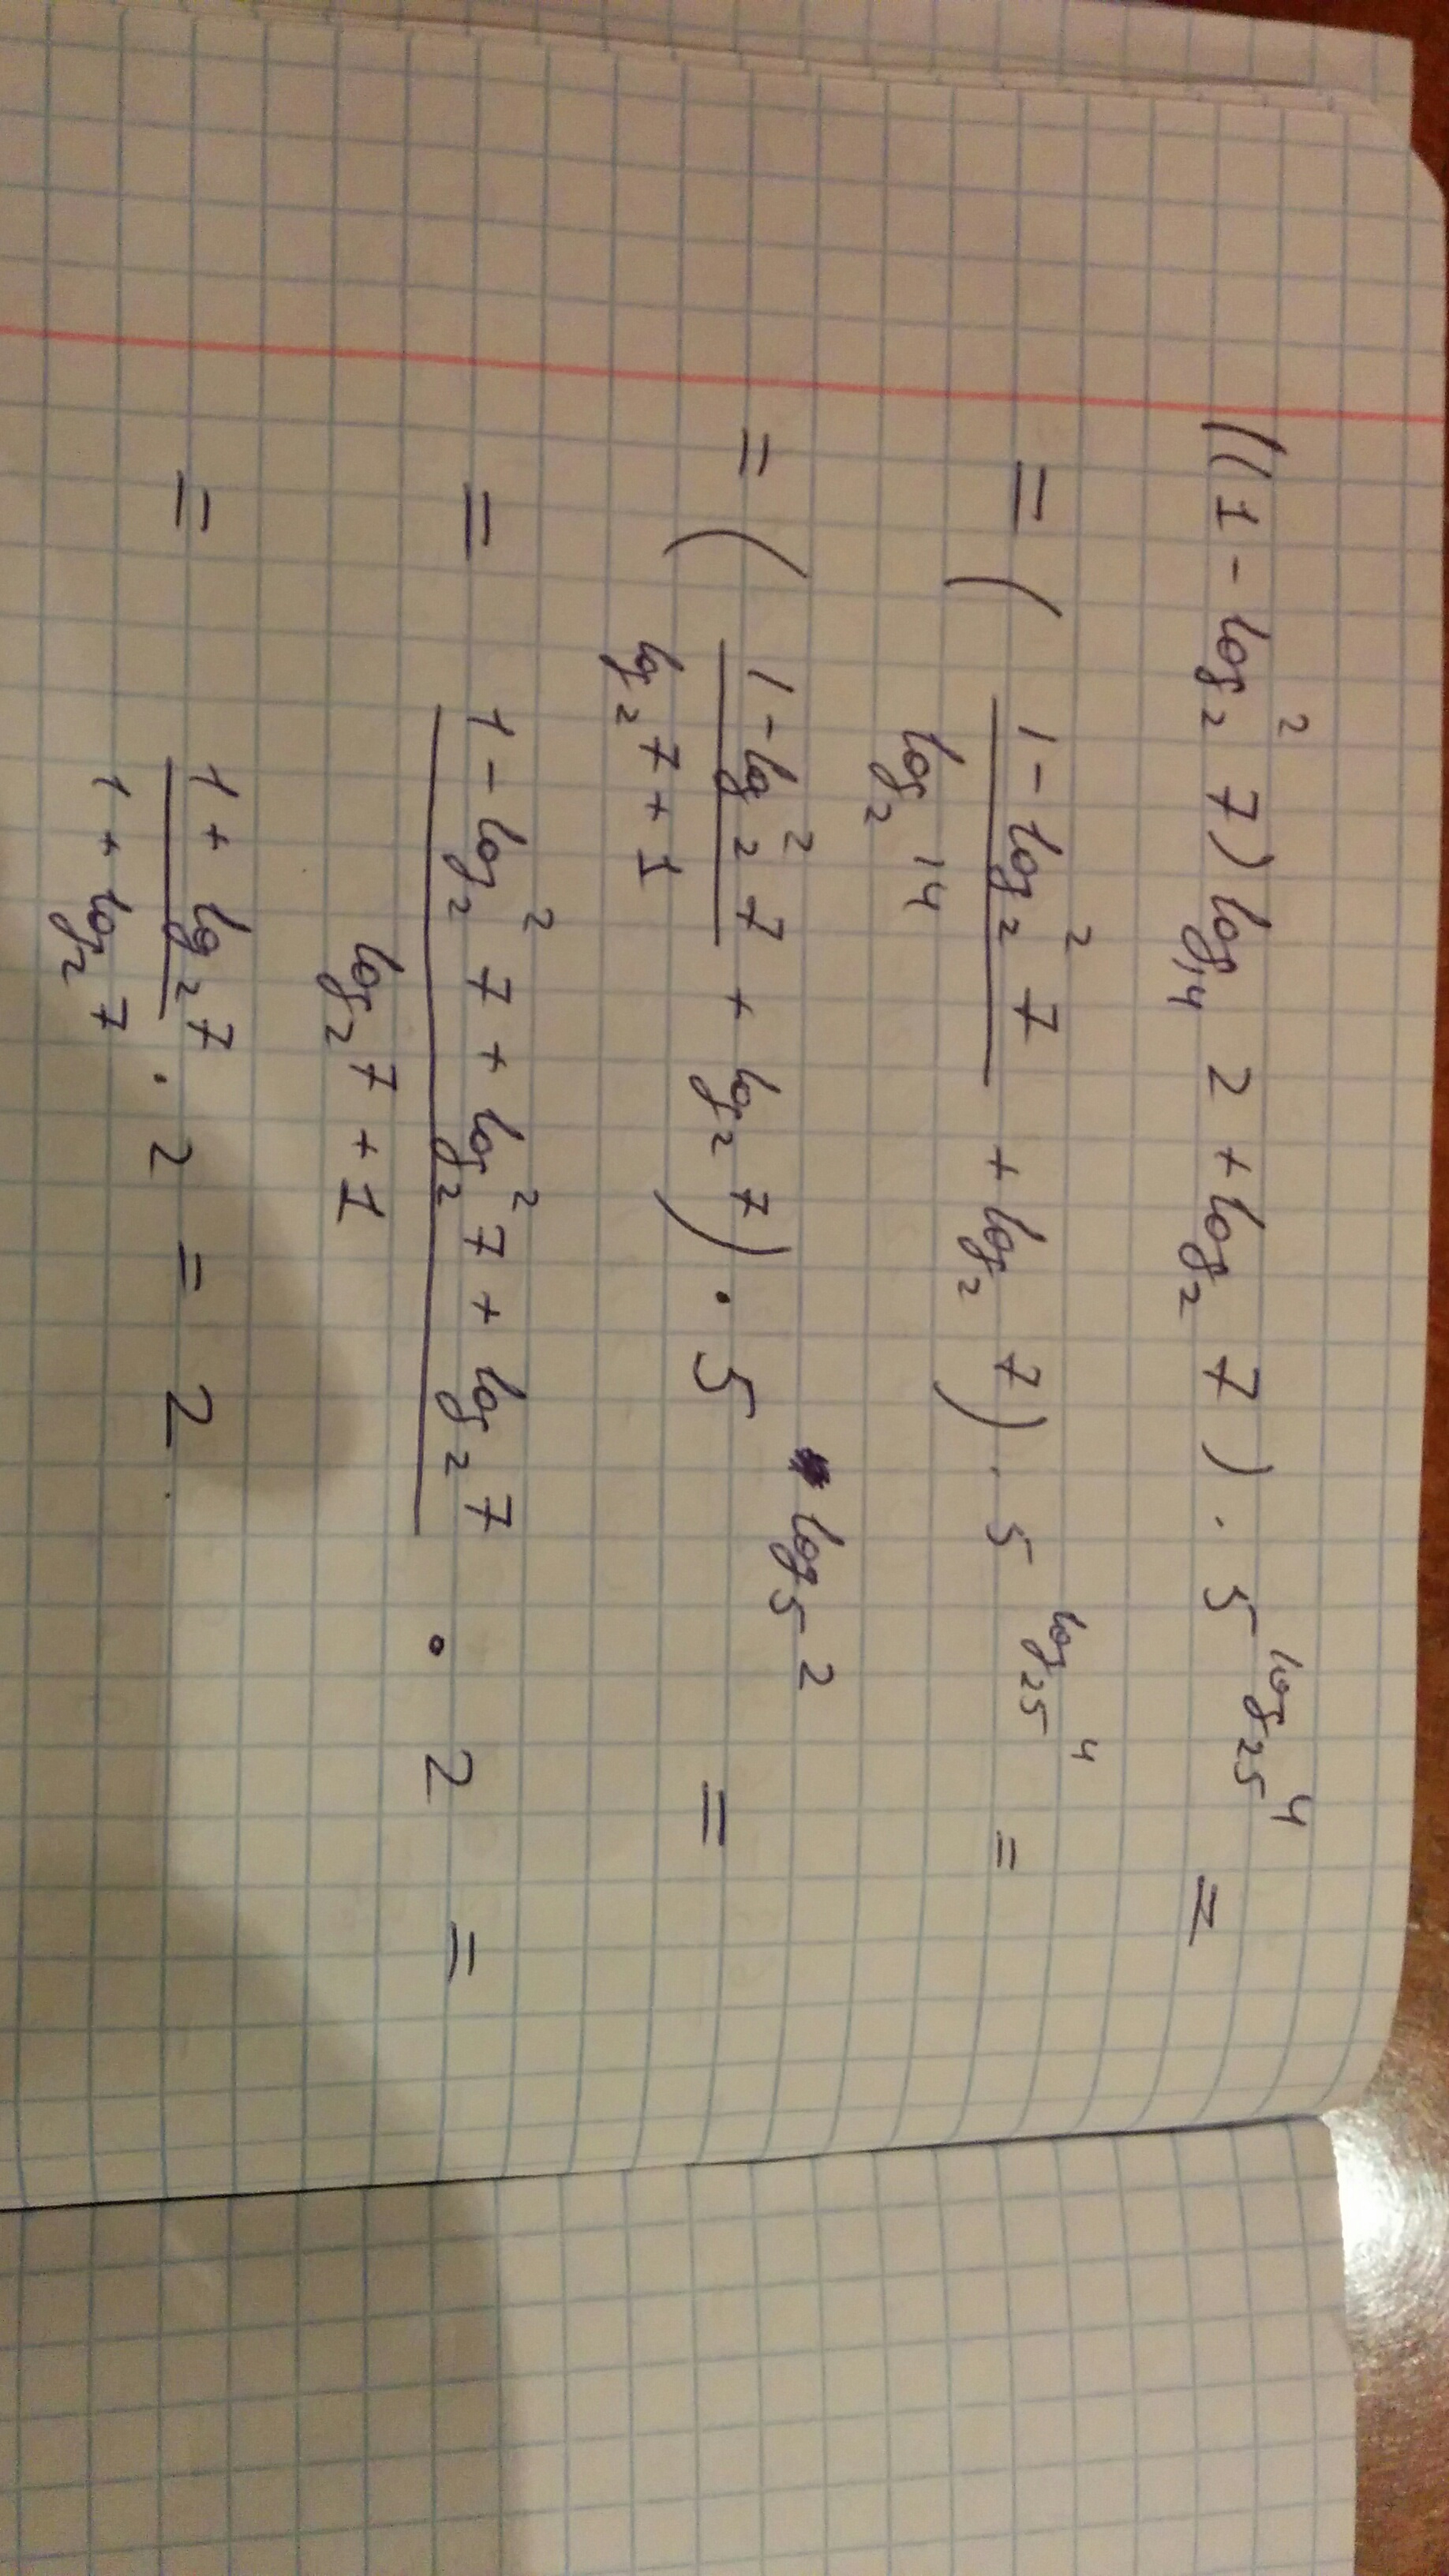 ((1 - log₂² 7) log₁₄ 2 + log₂ 7) · 5^(log₂₅ 4) =
= ( (1 - log₂² 7) / (log₂ 14) + log₂ 7) · 5^(log₂₅ 4) =
= ( (1 - log₂² 7) / (log₂ 7 + 1) + log₂ 7) · 5^(log₅ 2) =
= (1 - log₂² 7 + log₂² 7 + log₂ 7) / (log₂ 7 + 1) · 2 =
= (1 + log₂ 7) / (1 + log₂ 7) · 2 = 2